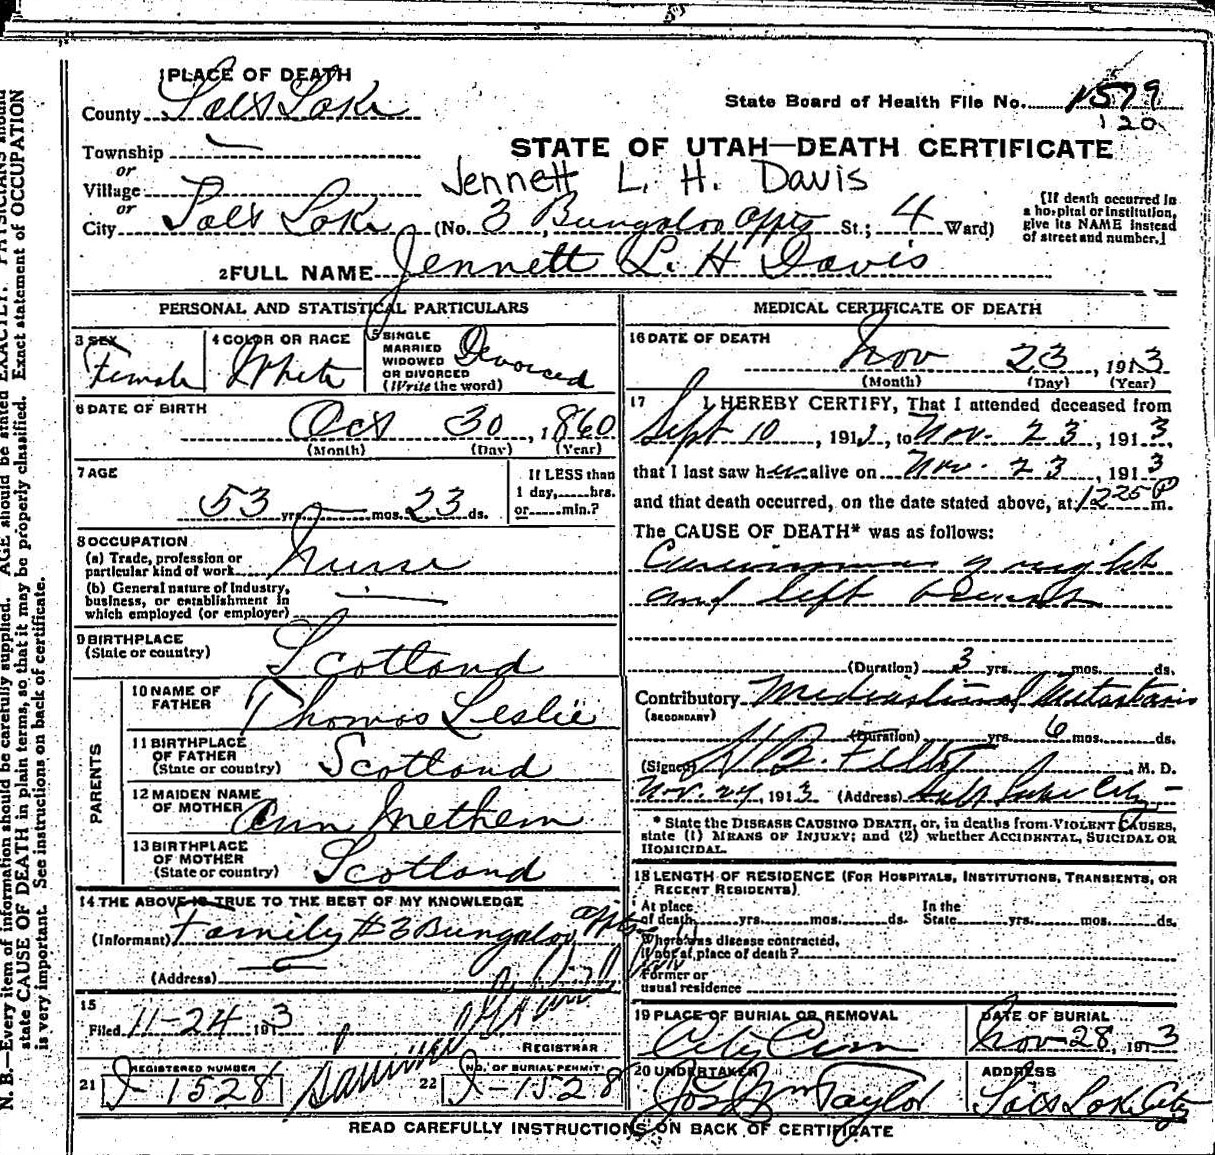 1 PLACE OF DEATH
County Salt Lake
State Board of Health File No. 1579
120
STATE OF UTAH—DEATH CERTIFICATE
Township
or
Village
or
Jennett L. H. Davis
City Salt Lake (No. 3, Bungalow Appts St.; 4 Ward)
[If death occurred in a hospital or institution, give its NAME instead of street and number.]
2 FULL NAME Jennett L. H Davis
PERSONAL AND STATISTICAL PARTICULARS
3 SEX
Female
4 COLOR OR RACE
White
5 SINGLE
MARRIED
WIDOWED
OR DIVORCED
(Write the word)
Divorced
6 DATE OF BIRTH
Oct 30, 1860
(Month) (Day) (Year)
7 AGE
53 yrs. — mos. 23 ds.
If LESS than
1 day, hrs.
or min.?
8 OCCUPATION
(a) Trade, profession or
particular kind of work Nurse
(b) General nature of Industry,
business, or establishment in
which employed (or employer)
9 BIRTHPLACE
(State or country) Scotland
PARENTS
10 NAME OF
FATHER Thomas Leslie
11 BIRTHPLACE
OF FATHER
(State or country) Scotland
12 MAIDEN NAME
OF MOTHER Ann Methem
13 BIRTHPLACE
OF MOTHER
(State or country) Scotland
14 THE ABOVE IS TRUE TO THE BEST OF MY KNOWLEDGE
(Informant) Family #3 Bungalow Appts
(Address)
15
Filed 11-24 1913
REGISTRAR
21 REGISTERED NUMBER
I-1528
22 NO. OF BURIAL PERMIT
I-1528
MEDICAL CERTIFICATE OF DEATH
16 DATE OF DEATH
Nov 23, 1913
(Month) (Day) (Year)
17 I HEREBY CERTIFY, That I attended deceased from
Sept 10, 191, to Nov. 23, 1913,
that I last saw her alive on Nov. 23, 1913
and that death occurred, on the date stated above, at 1225 P m.
The CAUSE OF DEATH* was as follows:
Carcinoma of right
and left breast
(Duration) 3 yrs. mos. ds.
Contributory Mediastinal Metastasis
(SECONDARY)
(Duration) yrs. 6 mos. ds.
(Signed) , M. D.
Nov. 24, 1913 (Address) Salt Lake City
* State the DISEASE CAUSING DEATH, or, in deaths from VIOLENT CAUSES,
state (1) MEANS OF INJURY; and (2) whether ACCIDENTAL, SUICIDAL OR
HOMICIDAL.
18 LENGTH OF RESIDENCE (FOR HOSPITALS, INSTITUTIONS, TRANSIENTS, OR
RECENT RESIDENTS)
At place
of death yrs. mos. ds.
In the
State yrs. mos. ds.
Where was disease contracted,
if not at place of death?
Former or
usual residence
19 PLACE OF BURIAL OR REMOVAL
City Cem
DATE OF BURIAL
Nov 28, 1913
20 UNDERTAKER
Jos Wm Taylor
ADDRESS
Salt Lake City
READ CAREFULLY INSTRUCTIONS ON BACK OF CERTIFICATE
N. B.—Every item of information should be carefully supplied. AGE should be stated EXACTLY. PHYSICIANS should
state CAUSE OF DEATH in plain terms, so that it may be properly classified. Exact statement of OCCUPATION
is very important. See instructions on back of certificate.